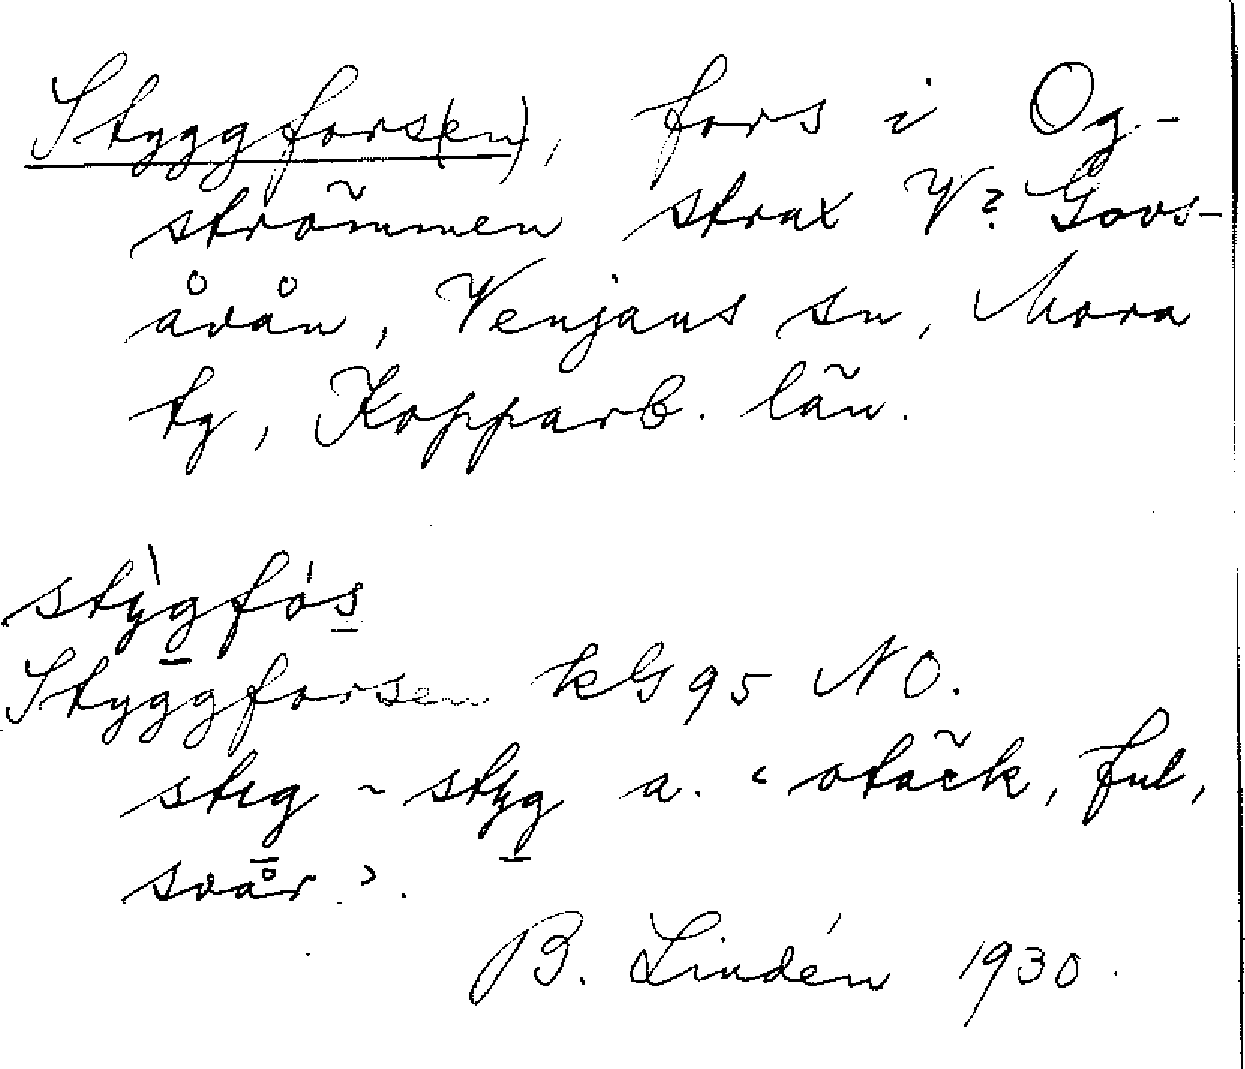 Styggfors(en), fors i Og-
strömmen strax V? Govs-
åvån, Venjans sn, Mora
tg, Kopparb. län.
stỳgfós
Styggforsen kG 95 NO.
stig ~ styg a. ‘otäck, ful,
svår’.
B. Lindén 1930.